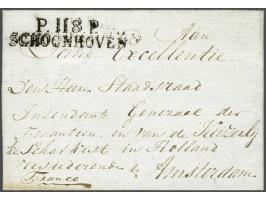 P 118 P
SCHOONHOVEN
Aan
Zeine Excellentie
Den Heer Staadsraad
Intendant Generaal der
Finantien en van de Keizerlij
ke Schatkist in Holland
resideerende te Amsterdam
Franco